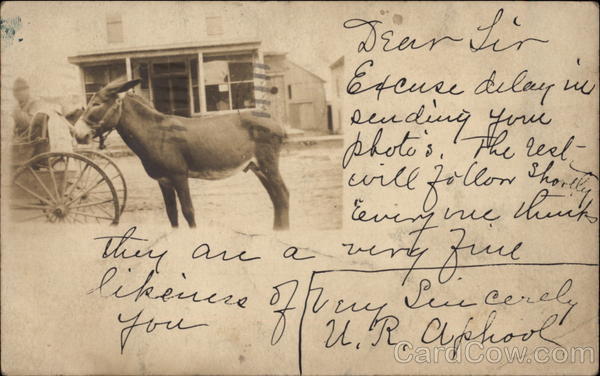 Dear Sir
Excuse delay in
sending your
photo's. The rest
will follow shortly
"Every one thinks
they are a very fine
likeness of
you
Very Sincerely
U. R. Aphool
CardCow.com